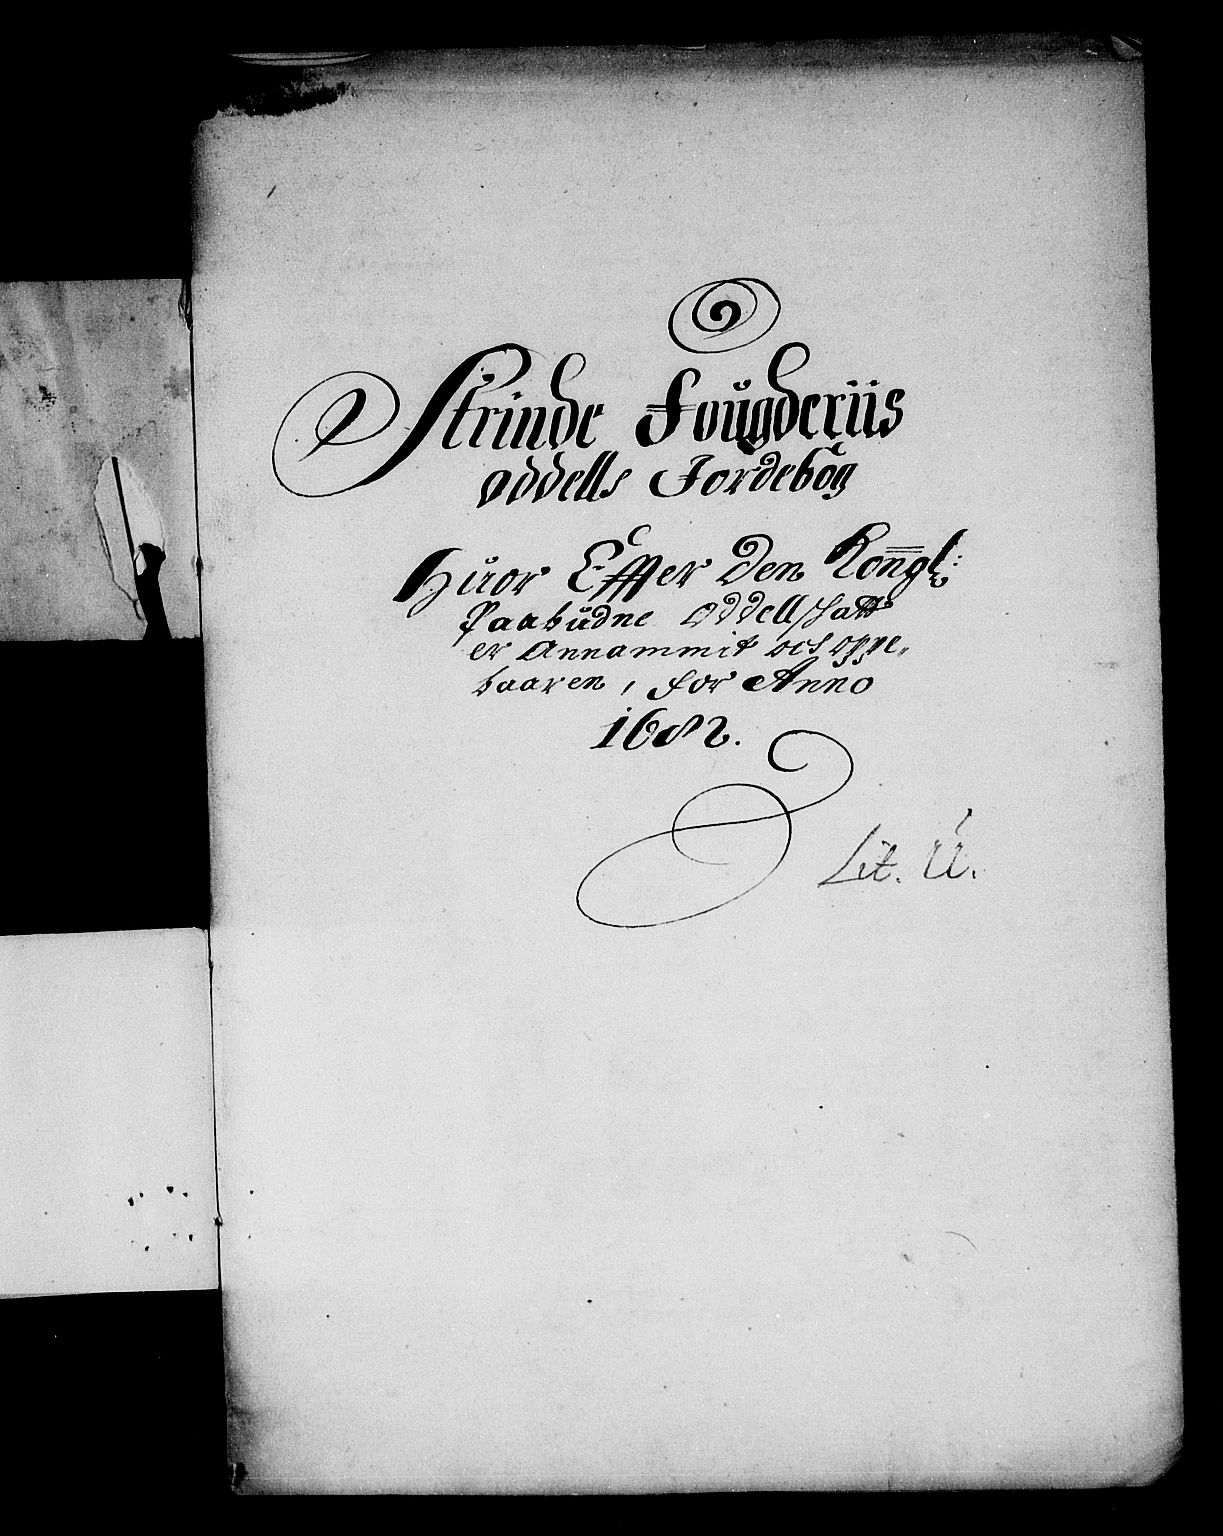 Strinde Foŭgderiis
Oddells Jordebog
Hŭor Effter Den Kongl:
Paabŭdne Oddell Skatt
er Annammit och oppe„
baaren, for Anno
1682.
Lit. Ŭ.